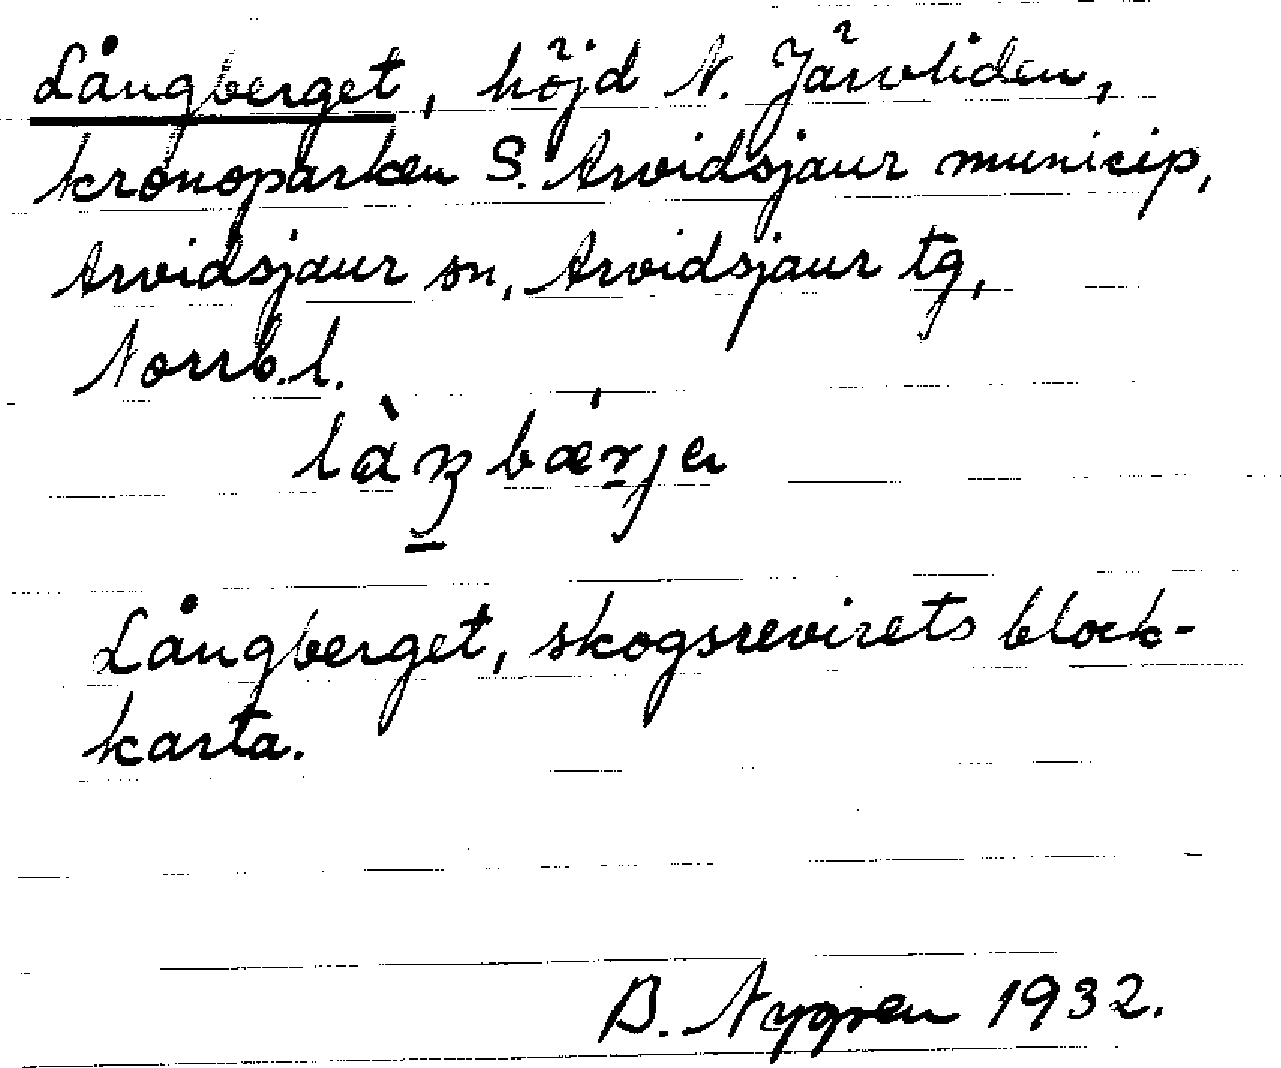 Långberget, höjd N. Järvliden,
kronoparken S. Arvidsjaur municip,
Arvidsjaur sn, Arvidsjaur tg,
Norrb.l.
Långberget, skogsrevirets block-
karta.
B. Nygren 1932.